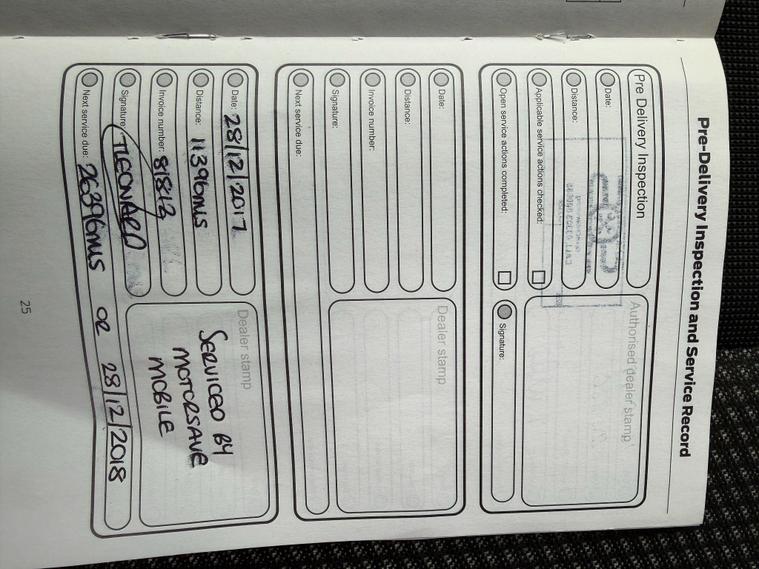 Pre-Delivery Inspection and Service Record
Pre Delivery Inspection
Date:
Distance:
Applicable service actions checked:
Open service actions completed:
Authorised dealer stamp
Signature:
Date:
Distance:
Invoice number:
Signature:
Next service due:
Dealer stamp
Date: 28/12/2017
Distance: 11396mls
Invoice number: 81812
Signature: TLEONARD
Next service due: 26396mls OR 28/12/2018
Dealer stamp
SERVICED BY
MOTORSAVE
MOBILE
25